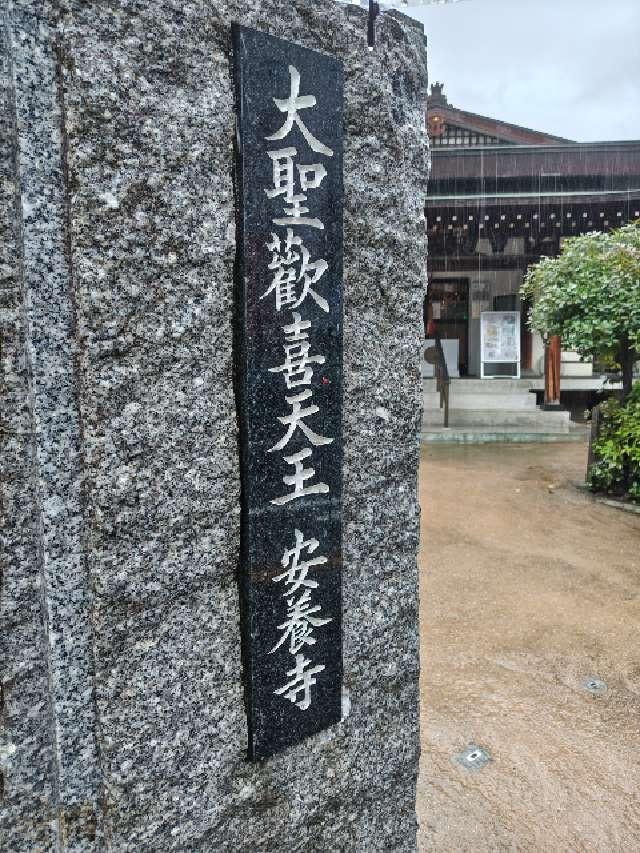 大聖歡喜天王 安養寺